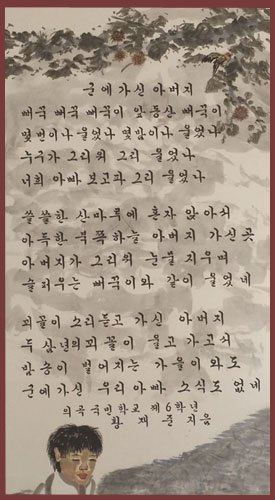 군에가신 아버지
뻐꾹 뻐꾹 뻐꾹이 앞동산 뻐꾹이
몇번이나 울었나 몇밤이나 울었나
누구가 그리워 그리 울었나
너희 아빠 보고파 그리 울었나
쓸쓸한 산마루에 혼자 앉아서
아득한 북쪽하늘 아버지 가신곳
아버지가 그리워 눈물 지우며
슬피우는 뻐꾹이와 같이 울었네
꾀꼴이 소리듣고 가신 아버지
두 삼년의 꾀꼴이 울고 가고서
밤송이 벌어지는 가을이 와도
군에가신 우리아빠 소식도 없네
의곡국민학교 제6학년
황재준 지음